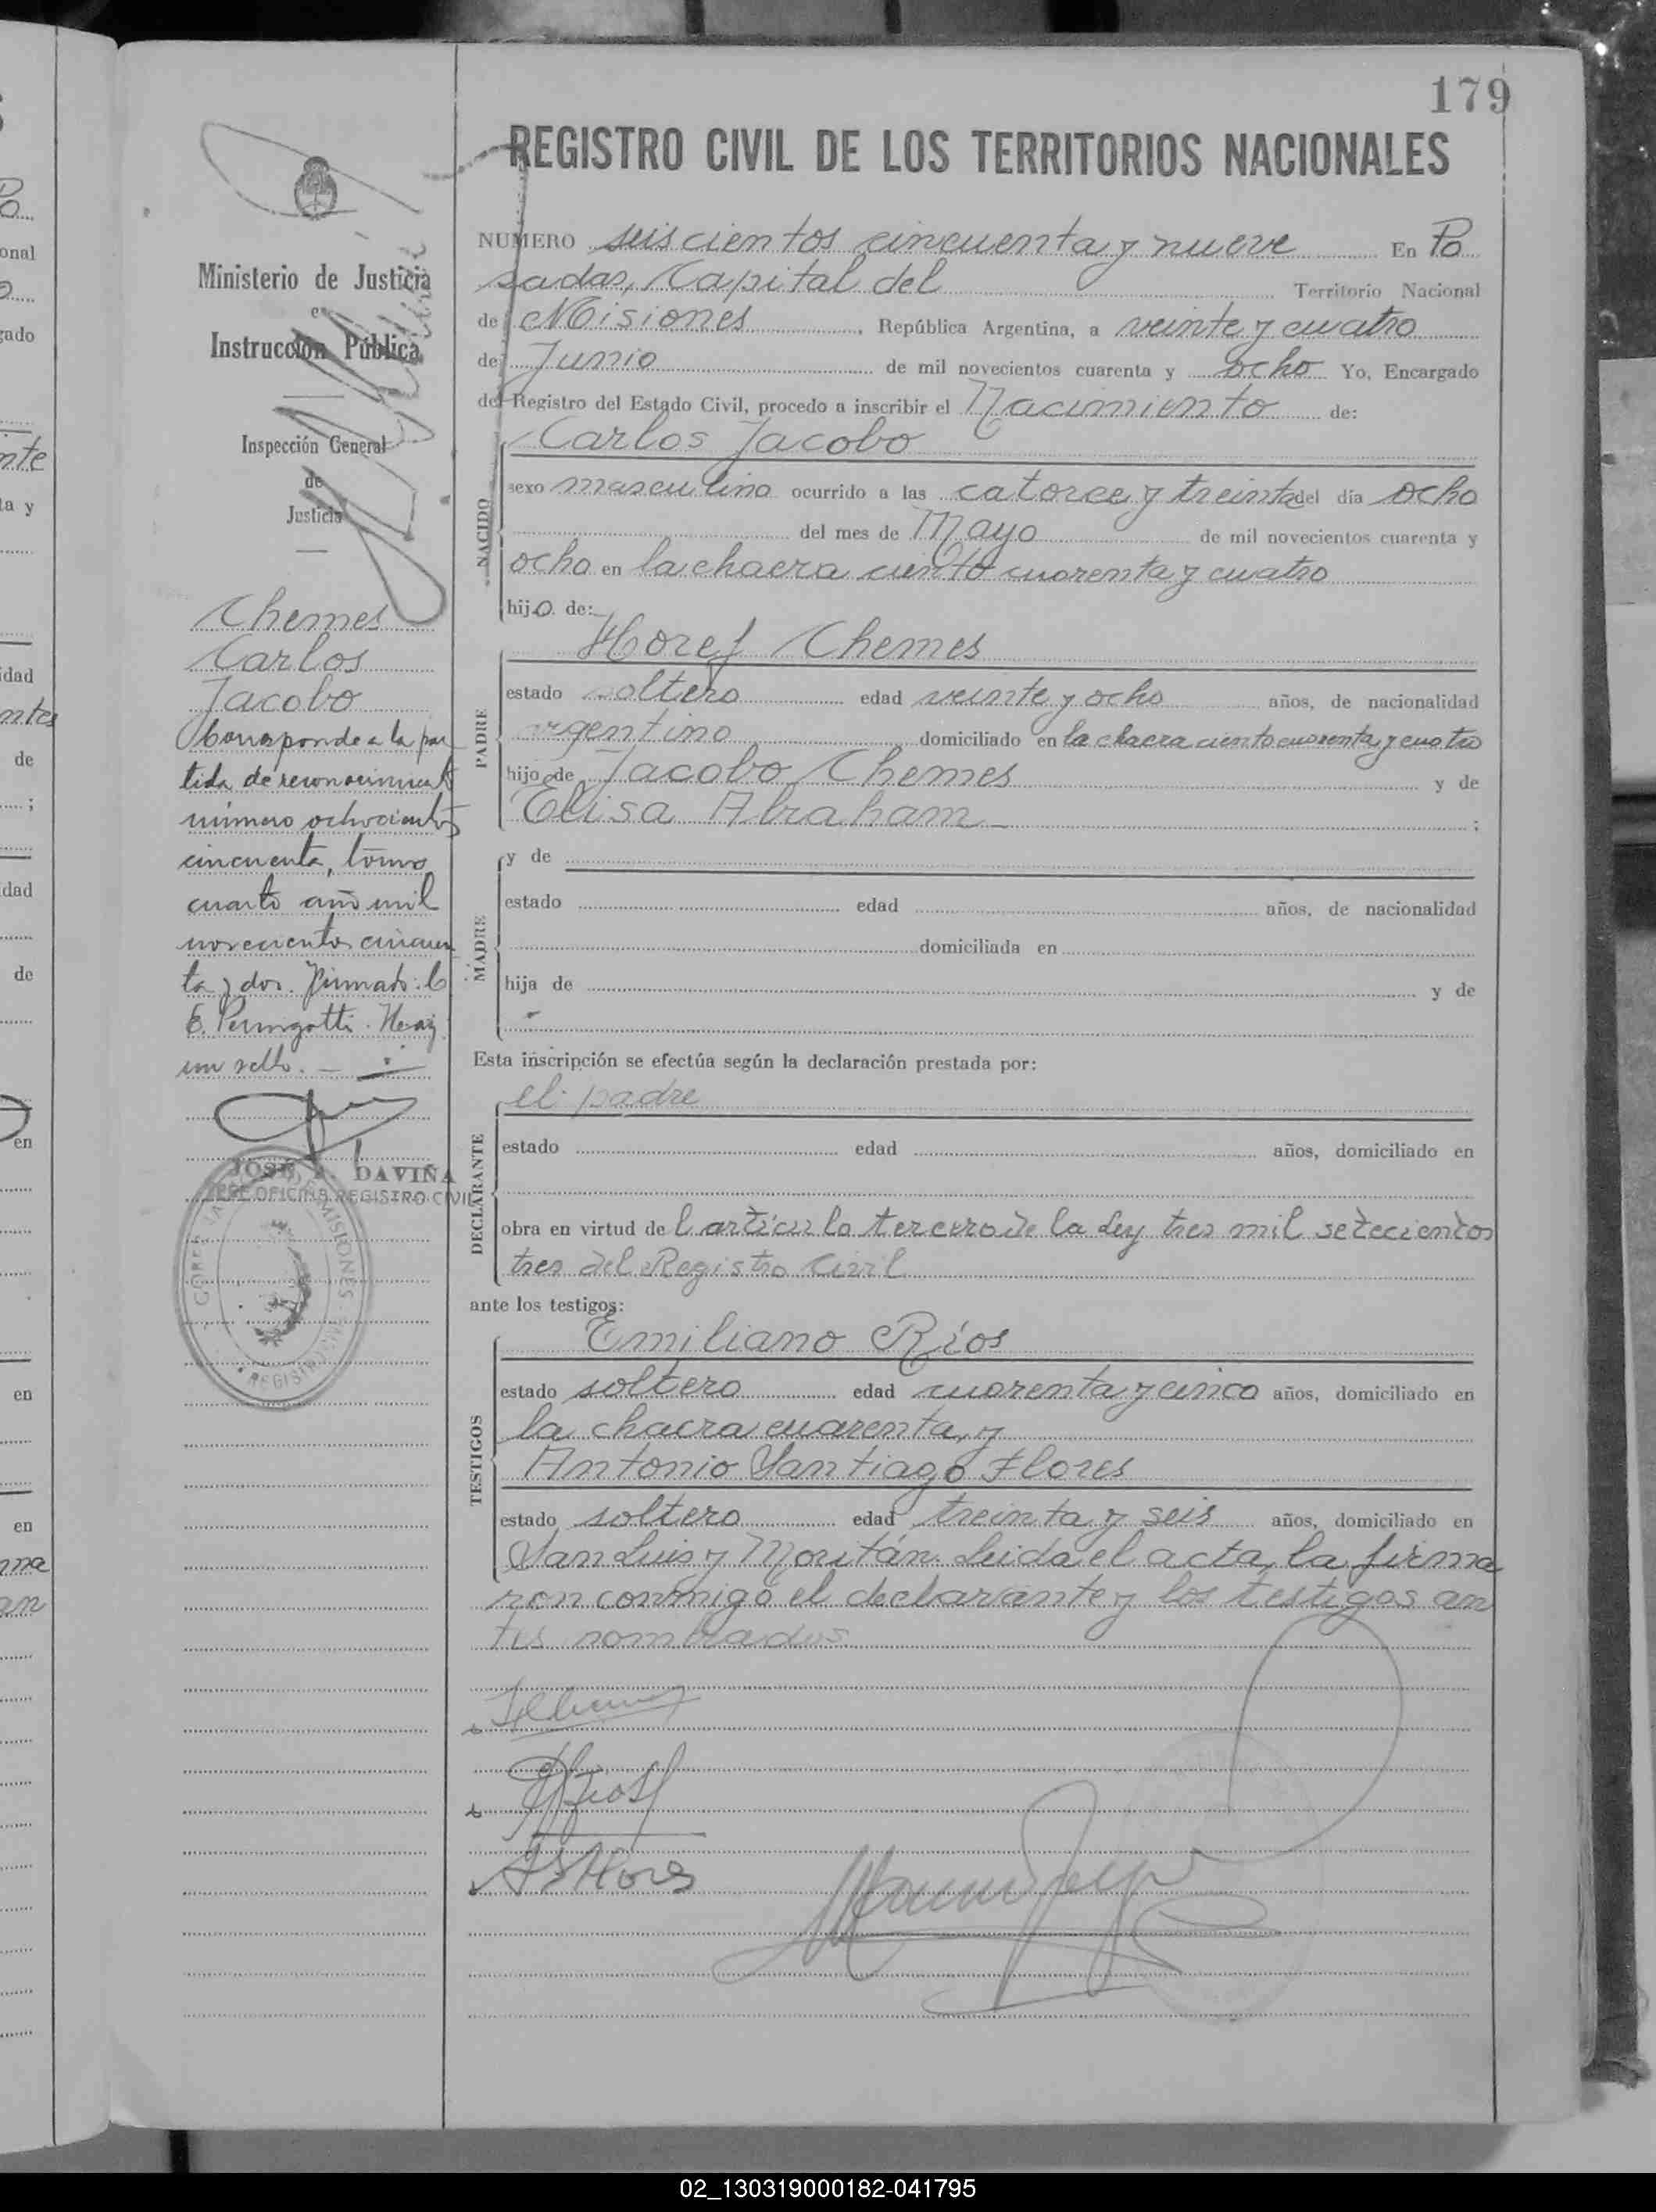 179
REGISTRO CIVIL DE LOS TERRITORIOS NACIONALES
Ministerio de Justicia
e
Instrucción Pública
Inspección General
de
Justicia
Chemes
Carlos
Jacobo
Corresponde a la par
tida de reconocimiento
número ochocientos
cincuenta, tomo
cuarto año mil
novecientos cincuen
ta y dos. Firmado: C
E. Perngotti. Hay
un sello. —
JOSE A. DAVIÑA
JEFE OFICINA REGISTRO CIVIL
MISIONES
REGISTRO
NUMERO seiscientos cincuenta y nueve En Po
sadas, Capital del Territorio Nacional
de Misiones, República Argentina, a veinte y cuatro
de Junio de mil novecientos cuarenta y ocho Yo, Encargado
del Registro del Estado Civil, procedo a inscribir el Nacimiento de:
NACIDO
Carlos Jacobo
sexo masculino ocurrido a las catorce y treinta del día ocho
del mes de Mayo de mil novecientos cuarenta y
ocho en la chacra ciento cuarenta y cuatro
hijo de:
PADRE
Horef Chemes
estado soltero edad veinte y ocho años, de nacionalidad
argentino domiciliado en la chacra ciento cuarenta y cuatro
hijo de Jacobo Chemes y de
Elisa Abraham ;
MADRE
y de
estado edad años, de nacionalidad
domiciliada en
hija de y de
Esta inscripción se efectúa según la declaración prestada por:
DECLARANTE
el padre
estado edad años, domiciliado en
obra en virtud del artículo tercero de la Ley tres mil setecientos
tres del Registro Civil
ante los testigos:
TESTIGOS
Emiliano Ríos
estado soltero edad cuarenta y cinco años, domiciliado en
la chacra cuarenta, y
Antonio Santiago Flores
estado soltero edad treinta y seis años, domiciliado en
San Luis y Moritán. Leida el acta, la firma
ron conmigo el declarante y los testigos an
tes nombrados
ASFlores
02_130319000182-041795